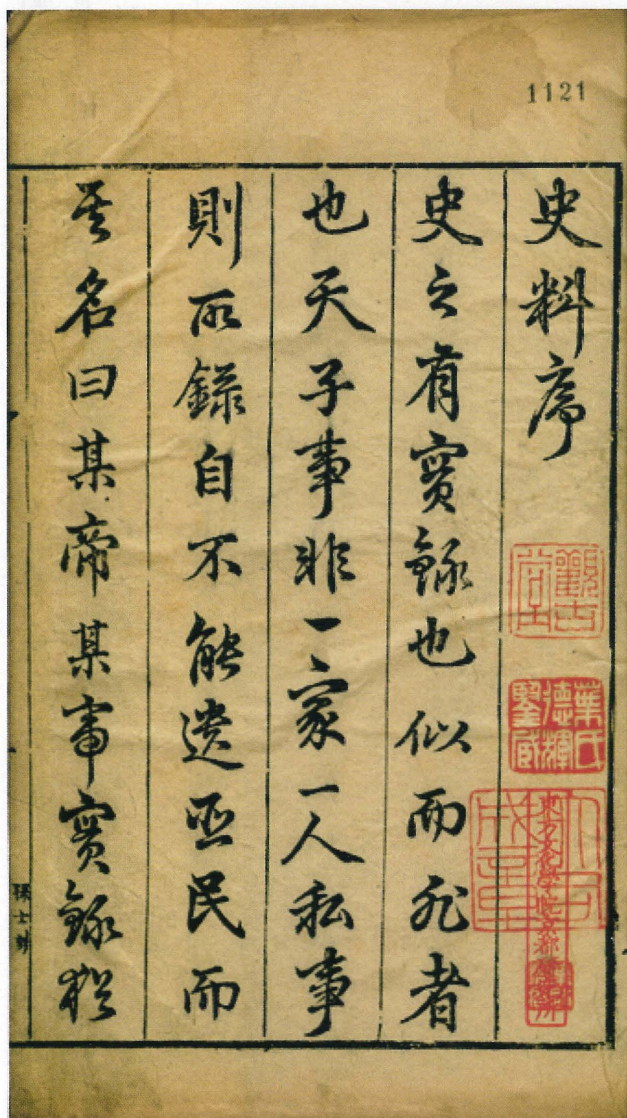 1121
史料序
史之有實錄也似而非者
也天子事非一家一人私事
則所錄自不能遺臣民而
其名曰某帝某實錄
觀古堂
葉氏德輝鑒藏
東方文化學院京都研究所